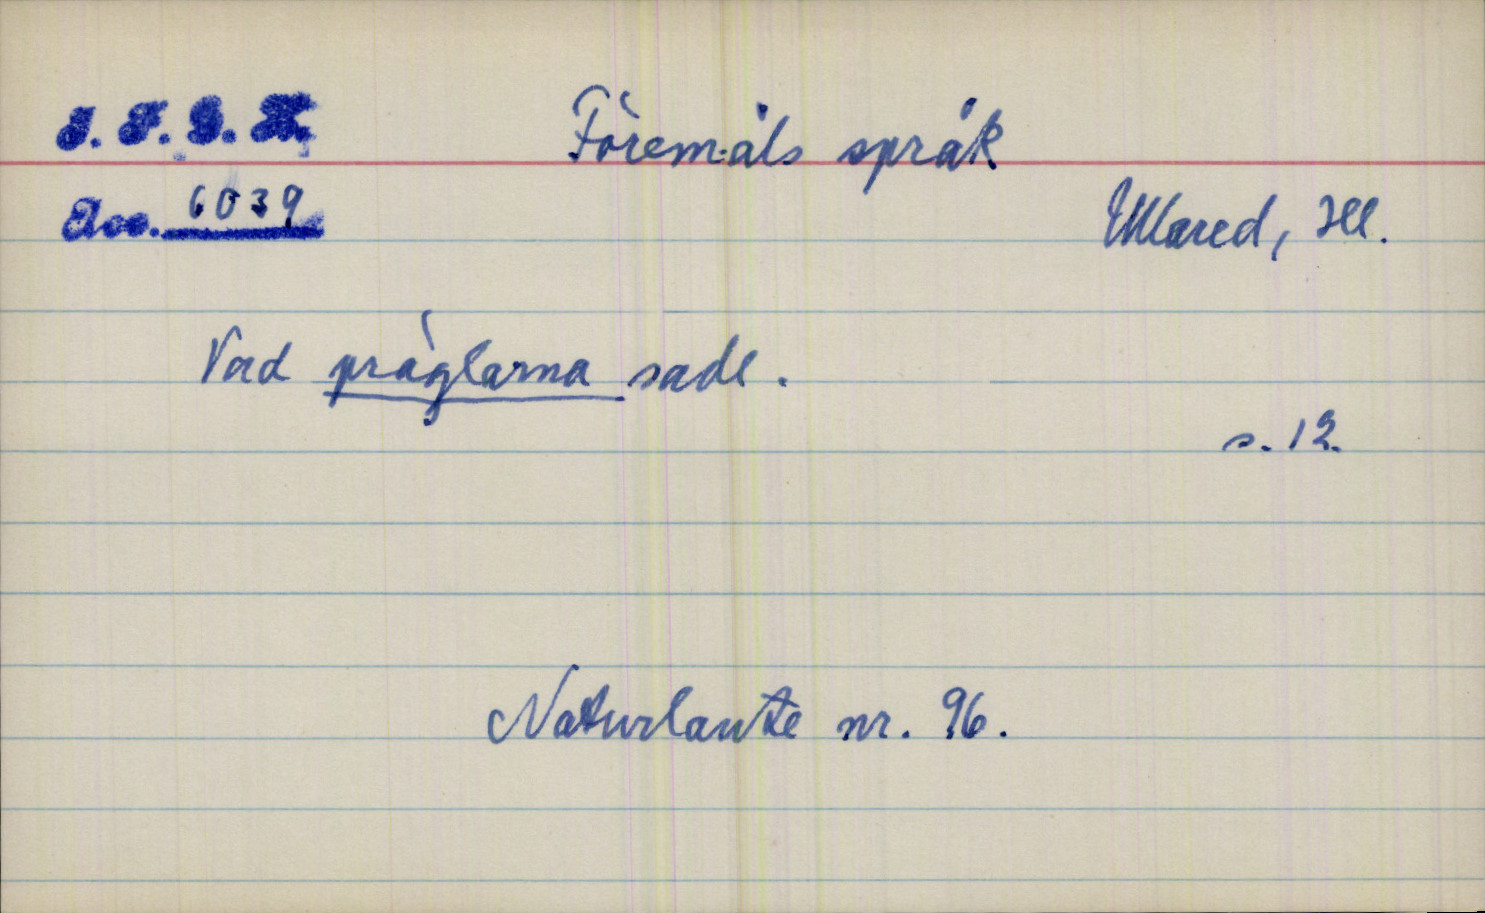 I. F. G. H.
Föremåls språk
Acc. 6039
Ullared, Hll.
Vad präglarna sade.
s. 12.
Naturlaute nr. 96.